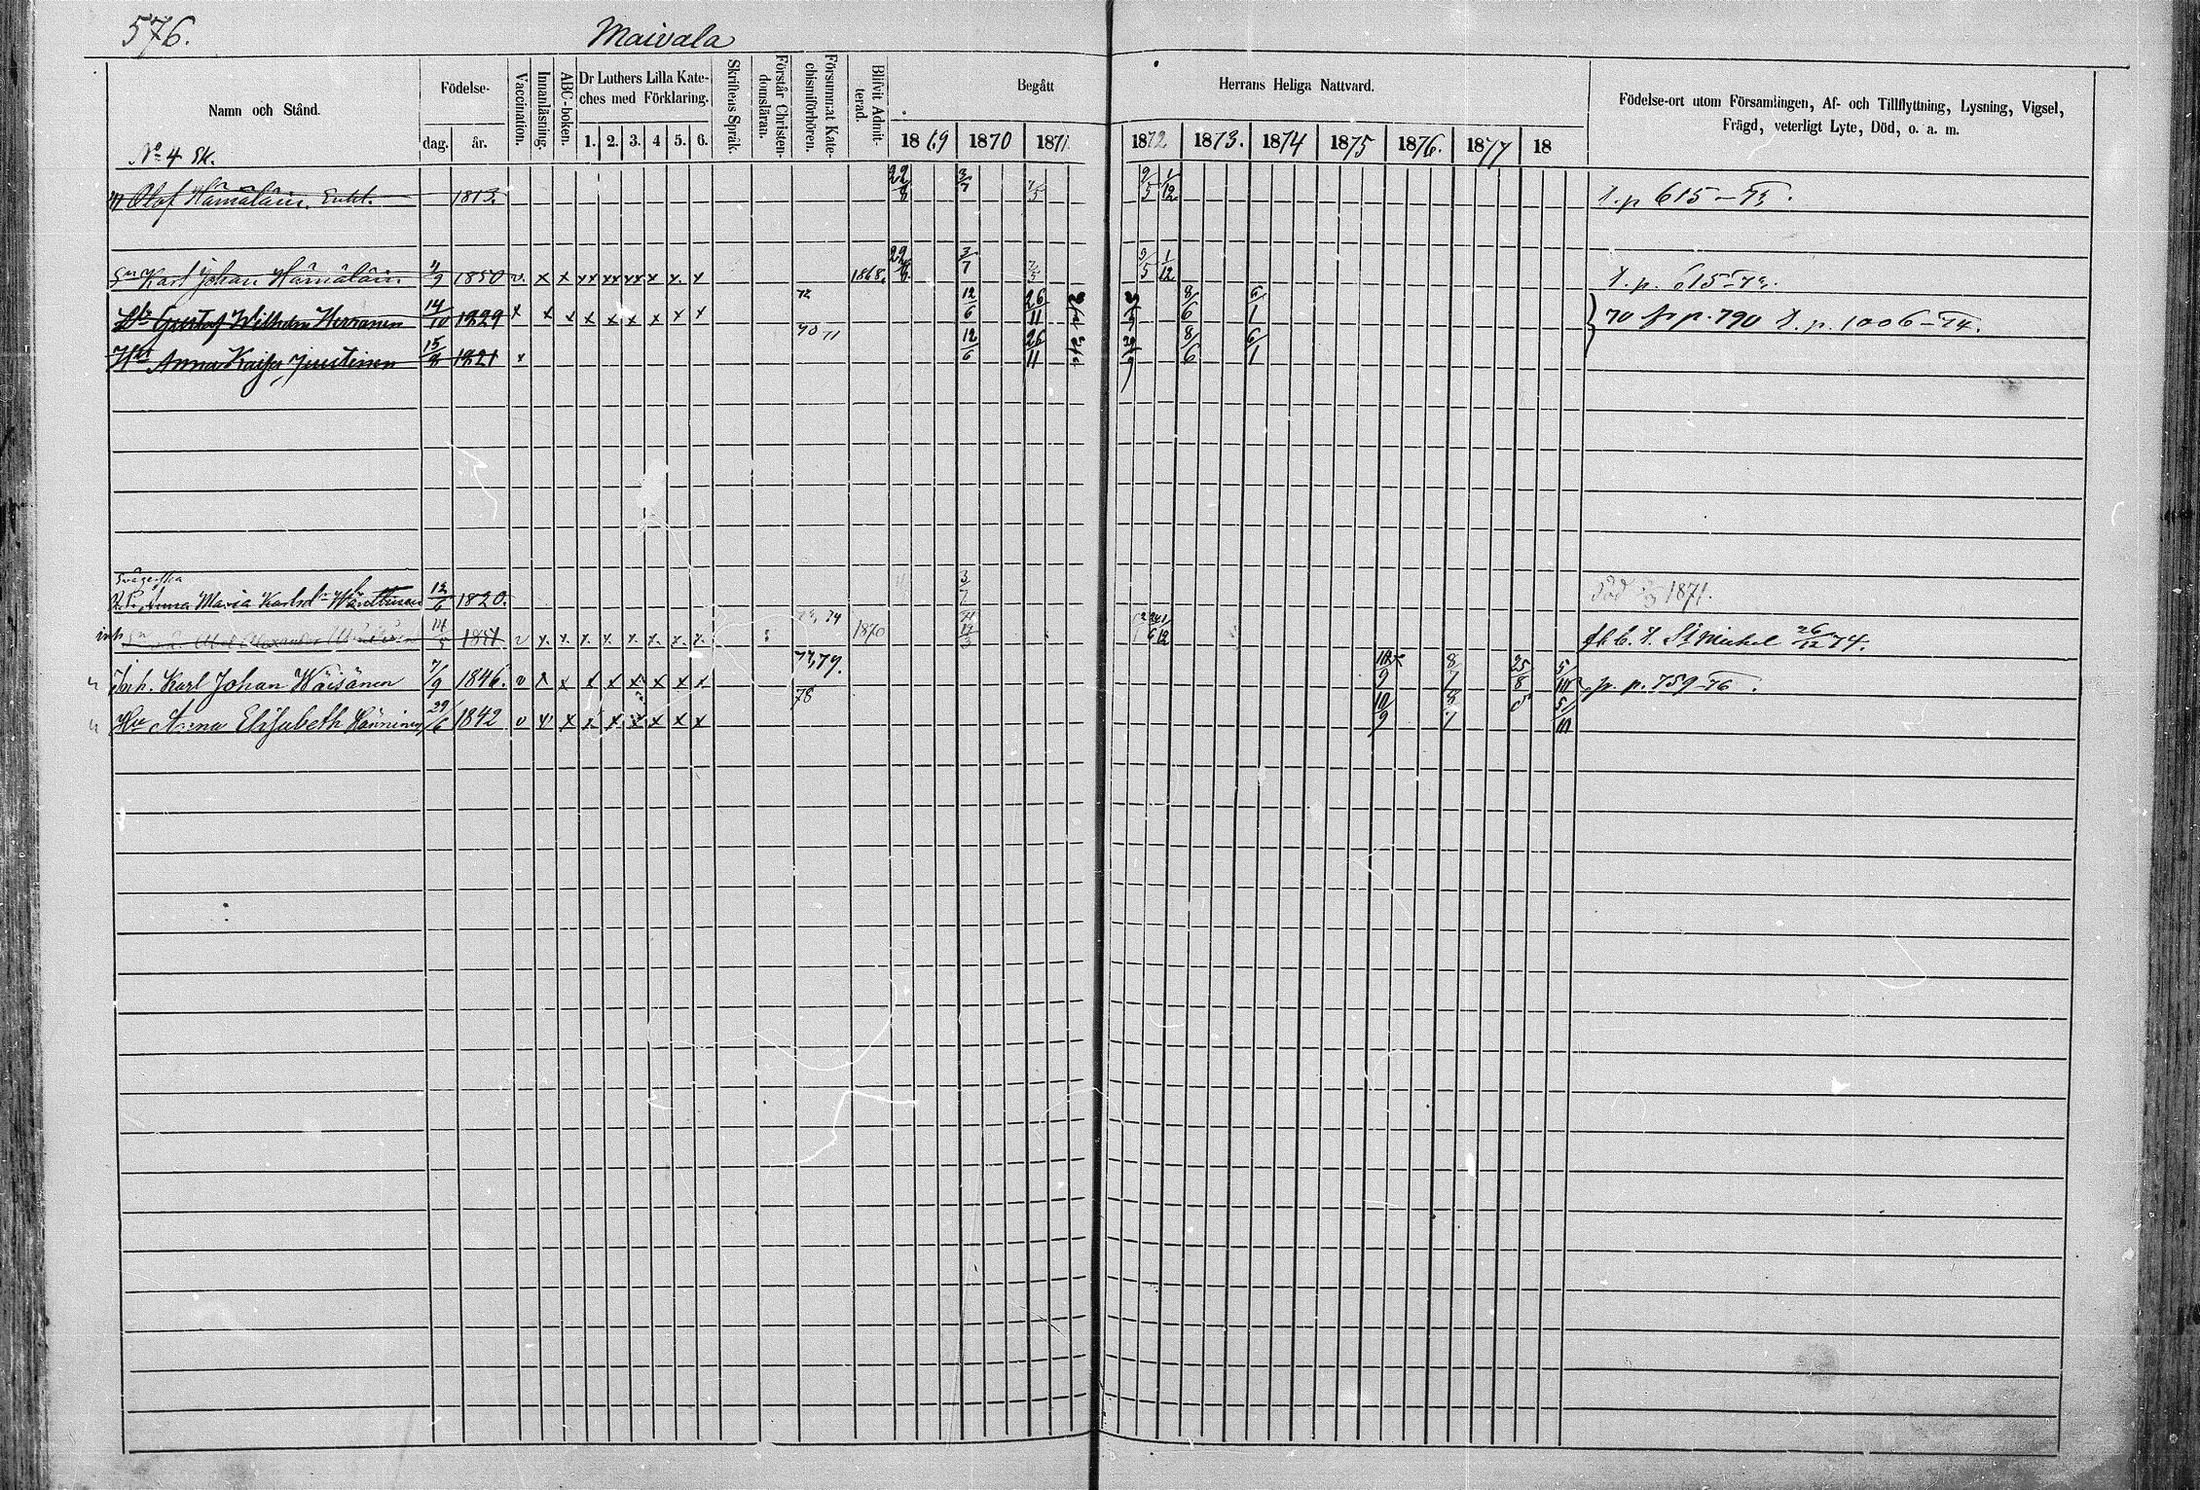 576.
Maivala
Namn och Stånd.
Födelse-
dag.
år.
Vaccination.
Innanläsning.
ABC-boken.
Dr Luthers Lilla Kate-
ches med Förklaring.
1. 2. 3. 4 5. 6.
Skriftens Språk.
Förstår Christen-
domsläran.
Försummat Kate-
chismiförhören.
Blifvit Admit-
terad.
Begått
Herrans Heliga Nattvard.
1869 1870 1871 1872 1873. 1874 1875 1876. 1877 18
Födelse-ort utom Församlingen, Af- och Tillflyttning, Lysning, Vigsel,
Frägd, veterligt Lyte, Död, o. a. m.
No 4 Sk.
Olof Hämäläin. Enkl. 1813. 22/8 3/7 7/5 9/5 1/12 p 615-73.
Sn Karl Johan Hämäläin 9 1850 v. x x xx xx xx x x. x 1868. 3/7 7/5 1/12 p. 615-73.
Gustaf Wilhelm Herranen 14/10 1829 x x x x x x x x x 72 12/6 26/11 8/6 6/1 70 fr p. 790 p. 1006-74.
Hu Anna Kaisa Juutinen 15 1821 x 70 71 12/6 26/11 29/9 8/6 6/1
Svägerska
Anna Maria Karlsdr 12/6 1820. 3/7 Död 1871.
inh Abel Alexander 1851 v x. x. x. x. x. x. x. x. 74 1870 St Michel 26/12 74.
Inh. Karl Johan Wäisänen 7/9 1846. v x x x x x x x x 77, 79. 10/9 8/7 25/8 5/10 p. 759-76.
Hu Anna Elisabeth Hänninen 29/6 1842 v x x x x x x x x 78 10/9 8/7 5/10